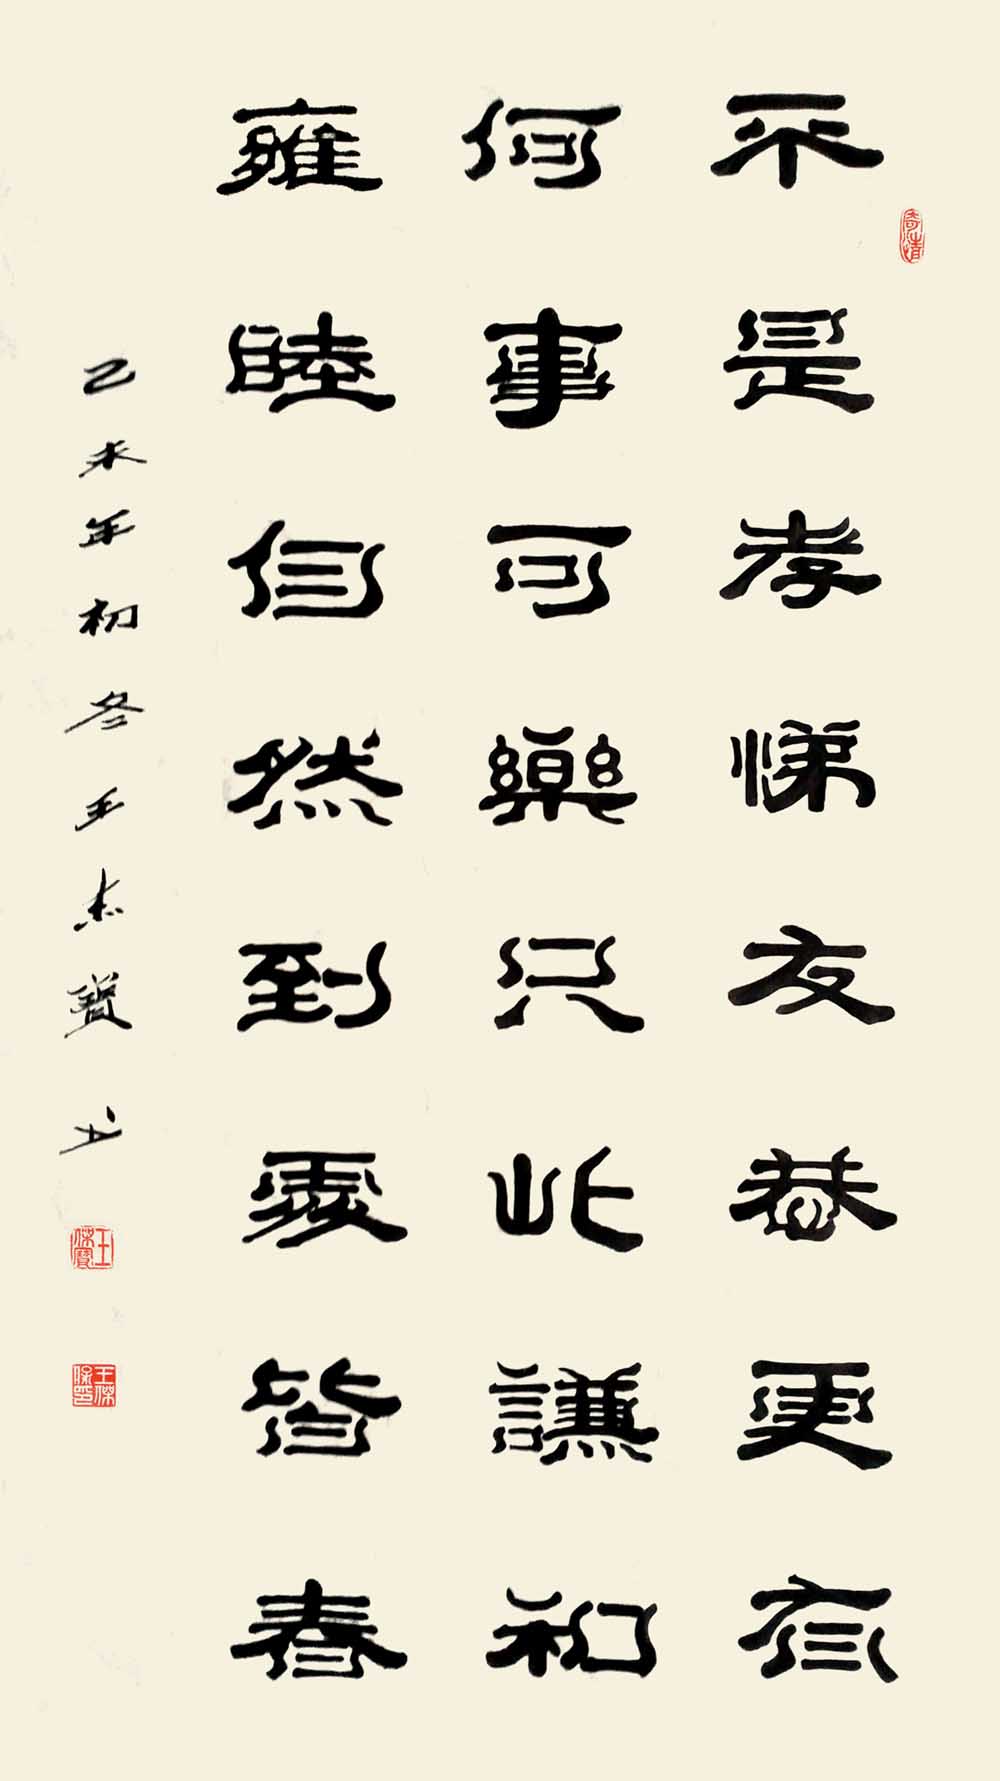 不是孝悌友恭更有
何事可樂只此謙和
雍睦自然到處皆春
乙未年初冬王杰寶书
寄情